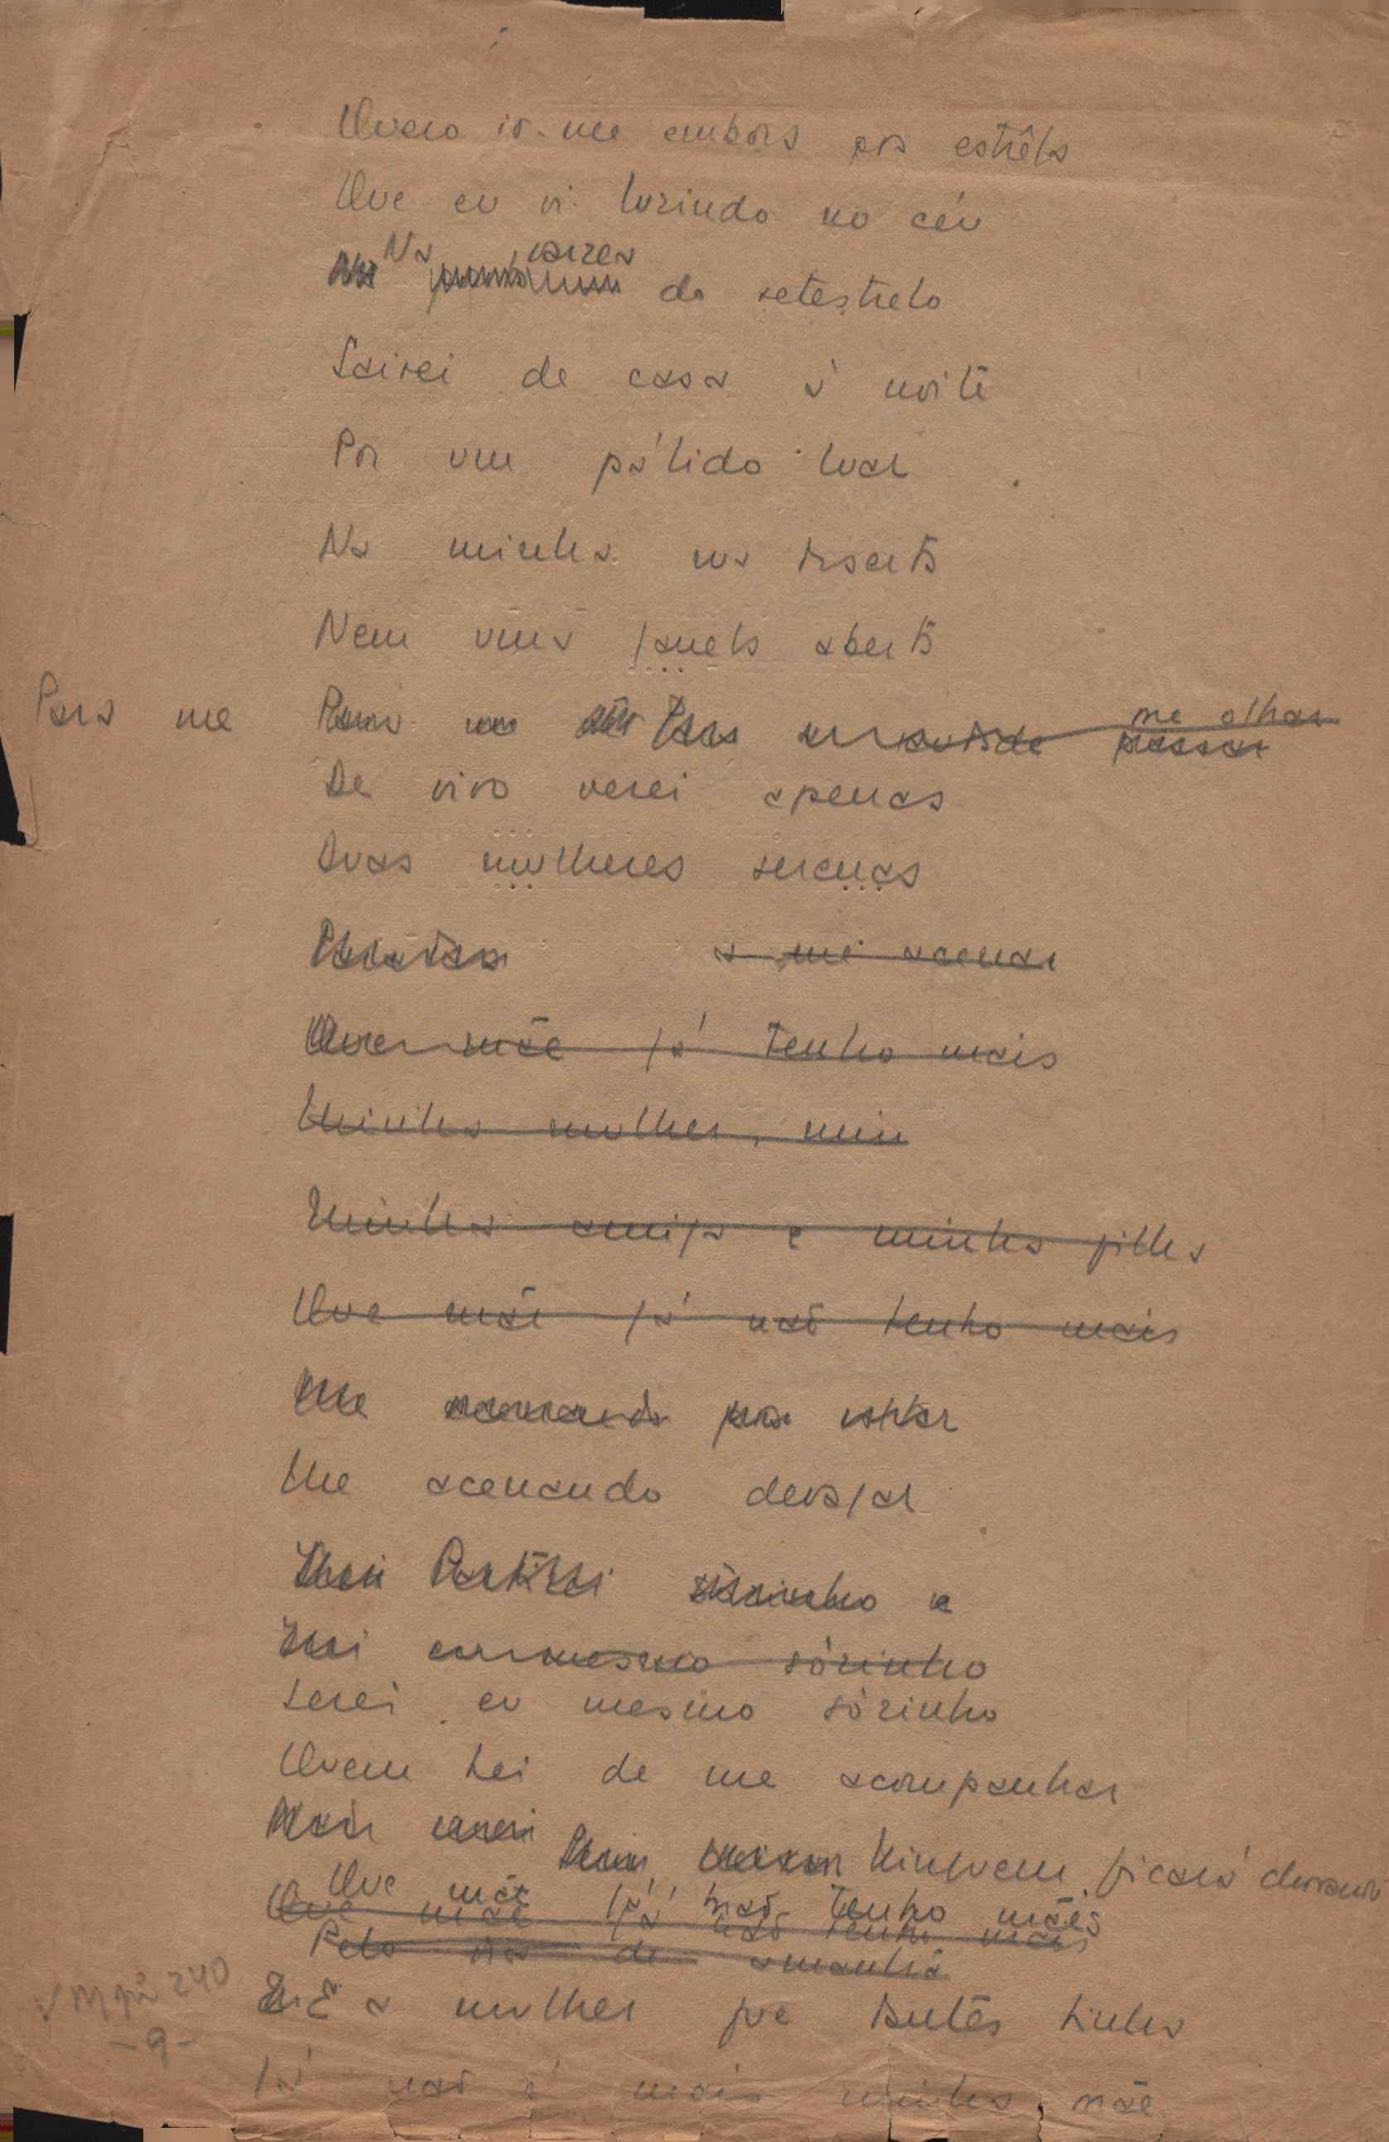 Quero ir-me embora pra estrêla
Que eu vi luzindo no céu
Na várzea
do setestrelo
Sairei de casa à noite
Por um pálido luar
Na minha rua deserta
Nem uma janela aberta
Para me me olhar
passar
De vivo verei apenas
Duas mulheres serenas
a me acenar
Que mãe já tenho mais
Minha mulher, min
Minha amiga e minha filha
Que mãe já não tenho mais
Me acenando
Me acenando devagar
Partirei sòzinho e
Irei eu mesmo sòzinho
Serei eu mesmo sòzinho
Quem hei de me acompanhar
Ninguem ficará chorando
Que mãe já não tenho mais
Que mãe já não tenho mais
Pelo de amanhã
E a mulher que tantas tinha
Já não é mais minha mãe
240
-9-